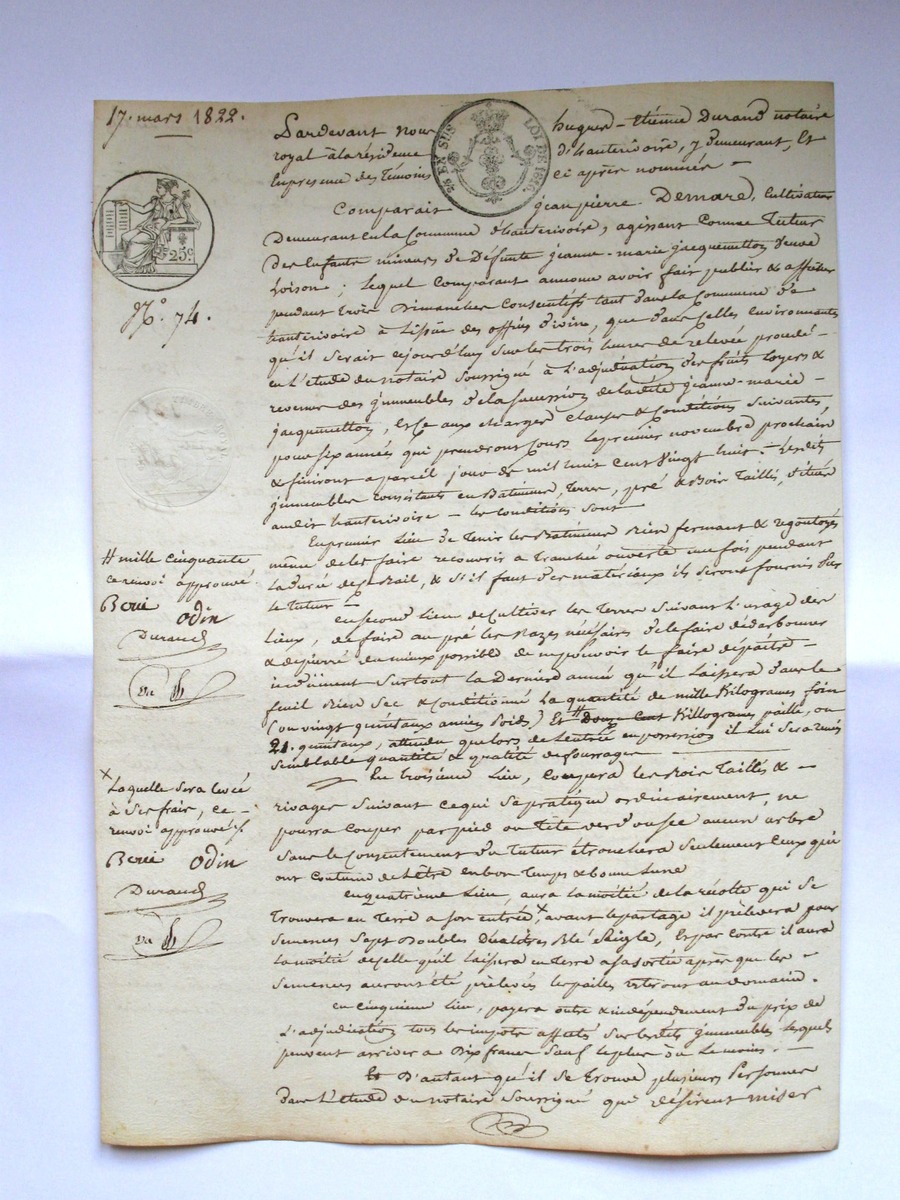 17. mars 1822.
Pardevant nous hugues-Etienne Durand notaire
royal à la résidence d'hauterivoire, y demeurant, Et
En presence des Temoins ci après nommés —
26 EN SUS LOI DE 1816
25c
Comparait jean pierre Demare, Cultivateur
Demeurant en la Commune d'hauterivoire, agissant Comme Tuteur
des Enfants mineurs de Défunte jeanne-marie jacquemetton veuve
Loison; lequel Comparant annonce avoir fait publier & afficher
pendant trois Dimanches Consecutifs tant dans la Commune de
hauterivoire à l'issue des offices divins, que dans Celles environnantes
qu'il Serait cejourd'huy Sur les trois heures de relevée procedé —
en L'étude du notaire Soussigné à l'adjudication des fruits Loyers &
revenus des jmmeubles de la Succession de ladite jeanne-marie —
jacquemetton, Et Ce aux charges Clauses & Conditions Suivantes,
pour six années qui prendront Cours le premier novembre prochain
& finiront a pareil jour de mil huit Cent Vingt huit. — Lesdits
jmmeubles Consistants en Batiments, Terres, pré & Bois Taillis, Situés
audit hauterivoire — les Conditions Sont
N.o 74.
En premier Lieu de Tenir les Batiments Bien fermant & regoutoyés
même de les faire recouvrir a Tranchée ouverte une fois pendant
la durée de ce Bail, & S'il faut des matériaux ils Seront fournis par
le tuteur —
# mille cinquante
ce renvoi approuvé.
Beric Odin
Durand
en Second Lieu de Cultiver les Terres Suivant l'usage des
Lieux, de faire au pré les Razes nécéssaires de le faire
& depierré du mieux possible de ne pouvoir le faire
Surtout la Derniere année qu'il Laissera dans le
feuil Bien Sec & Conditionné La quantité de mille Kilogrames foin
(ou vingt quintaux anciens poids) Et # Douze Cent Killogrames paille, ou
21. quintaux, attendu que lors de L'entrée en possession il Lui Sera remis
Semblable quantité & qualité de fourrages —
En Troisieme Lieu, Coupera les Bois Taillis & —
rivages Suivant Ce qui Se pratique ordinairement, ne
pourra Couper par pied ou Tête verd ou Sec aucun arbre
Sans le Consentement du Tuteur étronchera Seulement Ceux qui
ont Coutume de L'être en bon Temps & bonne Lune
x Laquelle Sera Levée
à Ses frais, ce —
renvoi approuvé.
Beric Odin
Durand
en quatrieme Lieu, aura la moitié de la récolte qui Se
Trouvera en Terre a son entrée, x avant le partage il prélevera pour
Semences Sept Doubles Décalitres Blé Seigle, Et par contre il aura
la moitié de Celle qu'il laissera en Terre a Sa Sortie après que les —
Semences auront été prélevées les pailles resteront au domaine.
en Cinquieme Lieu, payera outre & indépendament du prix de
L'adjudication tous les impôts affectés Sur lesdits jmmeubles Lesquels
peuvent arriver a Dix francs Sauf le plus ou Le moins. —
Et D'autant qu'il Se trouve plusieurs Personnes
Dans L'étude du notaire Soussigné qui désirent miser